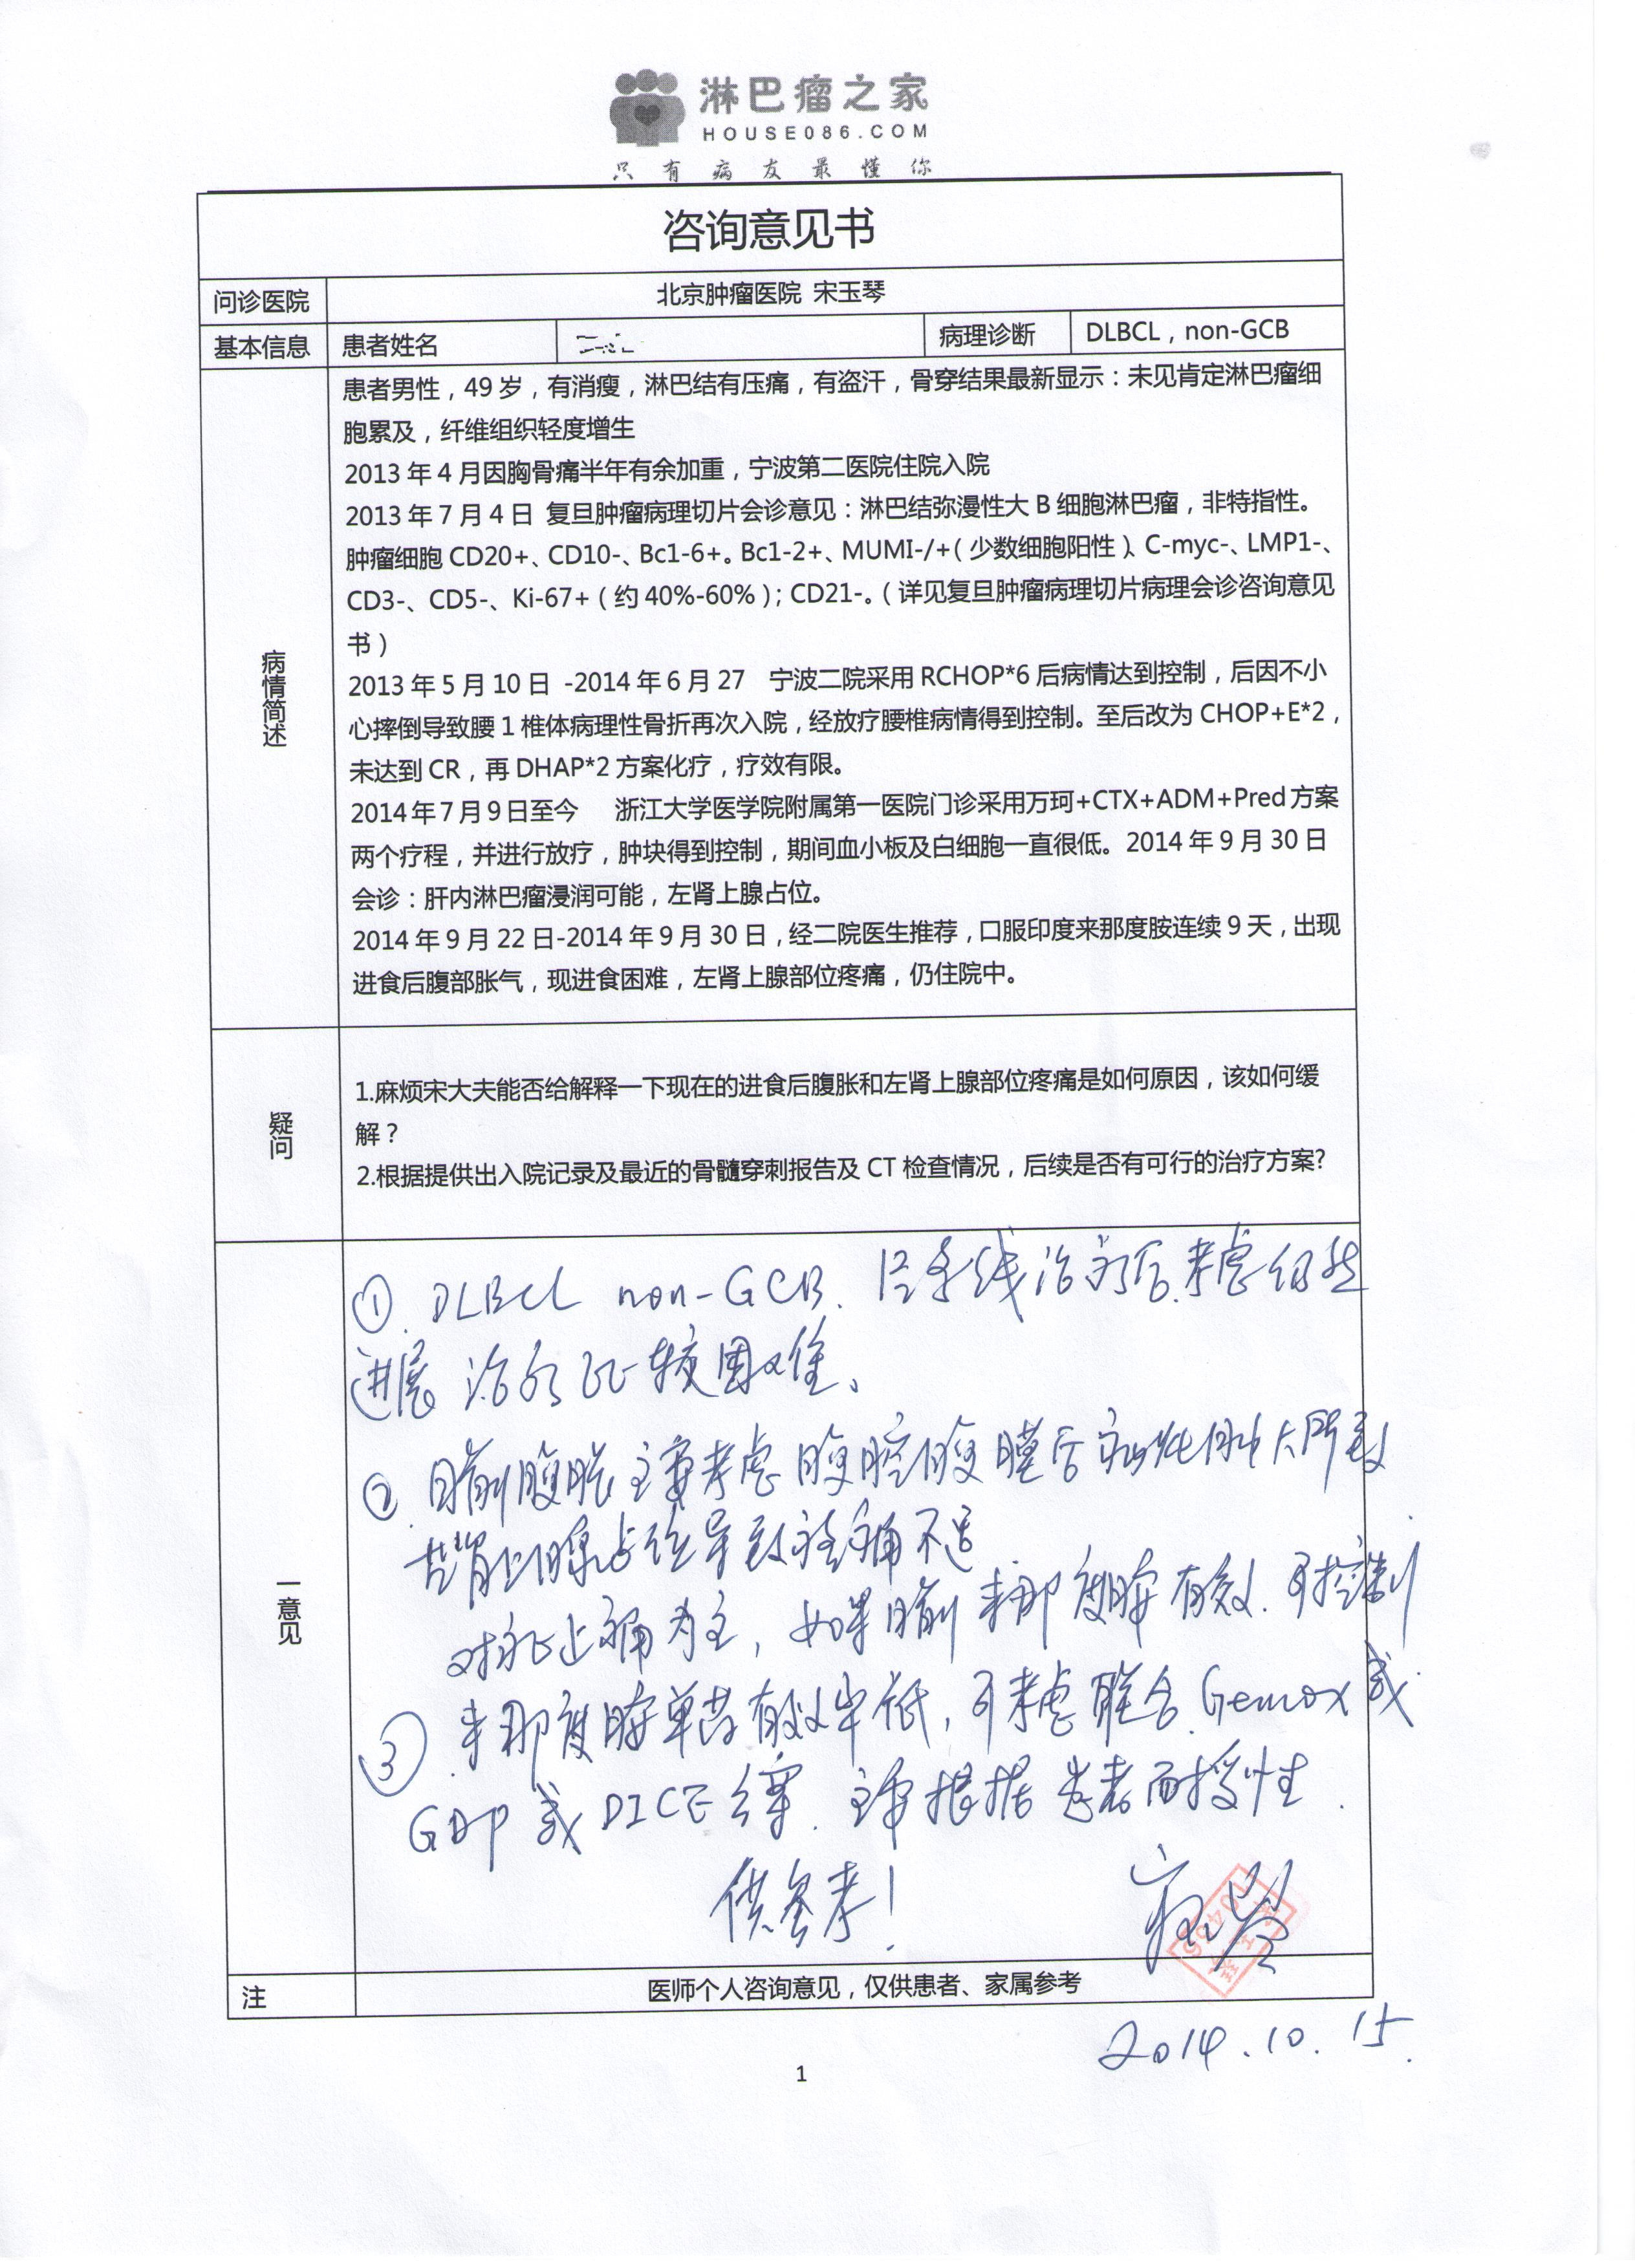 淋巴瘤之家
HOUSE086.COM
只有病友最懂你
咨询意见书
问诊医院 北京肿瘤医院 宋玉琴
基本信息 患者姓名 病理诊断 DLBCL，non-GCB
病情简述
患者男性，49岁，有消瘦，淋巴结有压痛，有盗汗，骨穿结果最新显示：未见肯定淋巴瘤细
胞累及，纤维组织轻度增生
2013年4月因胸骨痛半年有余加重，宁波第二医院住院入院
2013年7月4日 复旦肿瘤病理切片会诊意见：淋巴结弥漫性大B细胞淋巴瘤，非特指性。
肿瘤细胞CD20+、CD10-、Bc1-6+。Bc1-2+、MUMI-/+（少数细胞阳性）、C-myc-、LMP1-、
CD3-、CD5-、Ki-67+（约40%-60%）；CD21-。（详见复旦肿瘤病理切片病理会诊咨询意见
书）
2013年5月10日 -2014年6月27 宁波二院采用RCHOP*6后病情达到控制，后因不小
心摔倒导致腰1椎体病理性骨折再次入院，经放疗腰椎病情得到控制。至后改为CHOP+E*2，
未达到CR，再DHAP*2方案化疗，疗效有限。
2014年7月9日至今 浙江大学医学院附属第一医院门诊采用万珂+CTX+ADM+Pred方案
两个疗程，并进行放疗，肿块得到控制，期间血小板及白细胞一直很低。2014年9月30日
会诊：肝内淋巴瘤浸润可能，左肾上腺占位。
2014年9月22日-2014年9月30日，经二院医生推荐，口服印度来那度胺连续9天，出现
进食后腹部胀气，现进食困难，左肾上腺部位疼痛，仍住院中。
疑问
1.麻烦宋大夫能否给解释一下现在的进食后腹胀和左肾上腺部位疼痛是如何原因，该如何缓
解？
2.根据提供出入院记录及最近的骨髓穿刺报告及CT检查情况，后续是否有可行的治疗方案?
一意见
① DLBCL non-GCB. 经多线治疗后.考虑仍然
进展 治疗比较困难、
② 目前腹胀主要考虑腹腔腹膜后病灶肿大所致
肾上腺占位导致疼痛不适
对症止痛为主，如果目前来那度胺有效.可控制
③ 来那度胺单药有效率低，可考虑联合Gemox或
GDP或DICE方案.主要根据患者耐受性.
供参考！
宋玉琴
注 医师个人咨询意见，仅供患者、家属参考
2014.10.15
1